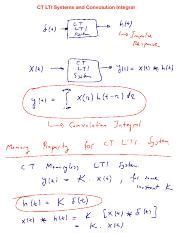 CT LTI Systems and Convolution Integral
δ(t) → CT LTI System → h(t)
↳ Impulse Response
x(t) → CT LTI System → y(t) = x(t) * h(t)
y(t) = ∫ x(τ) h(t-τ) dτ
↳ Convolution Integral
Memory Property for CT LTI System
CT Memoryless LTI System
y(t) = K · x(t), for some constant K
h(t) = K δ(t)
x(t) * h(t) = K [x(t) * δ(t)]
= K · x(t)